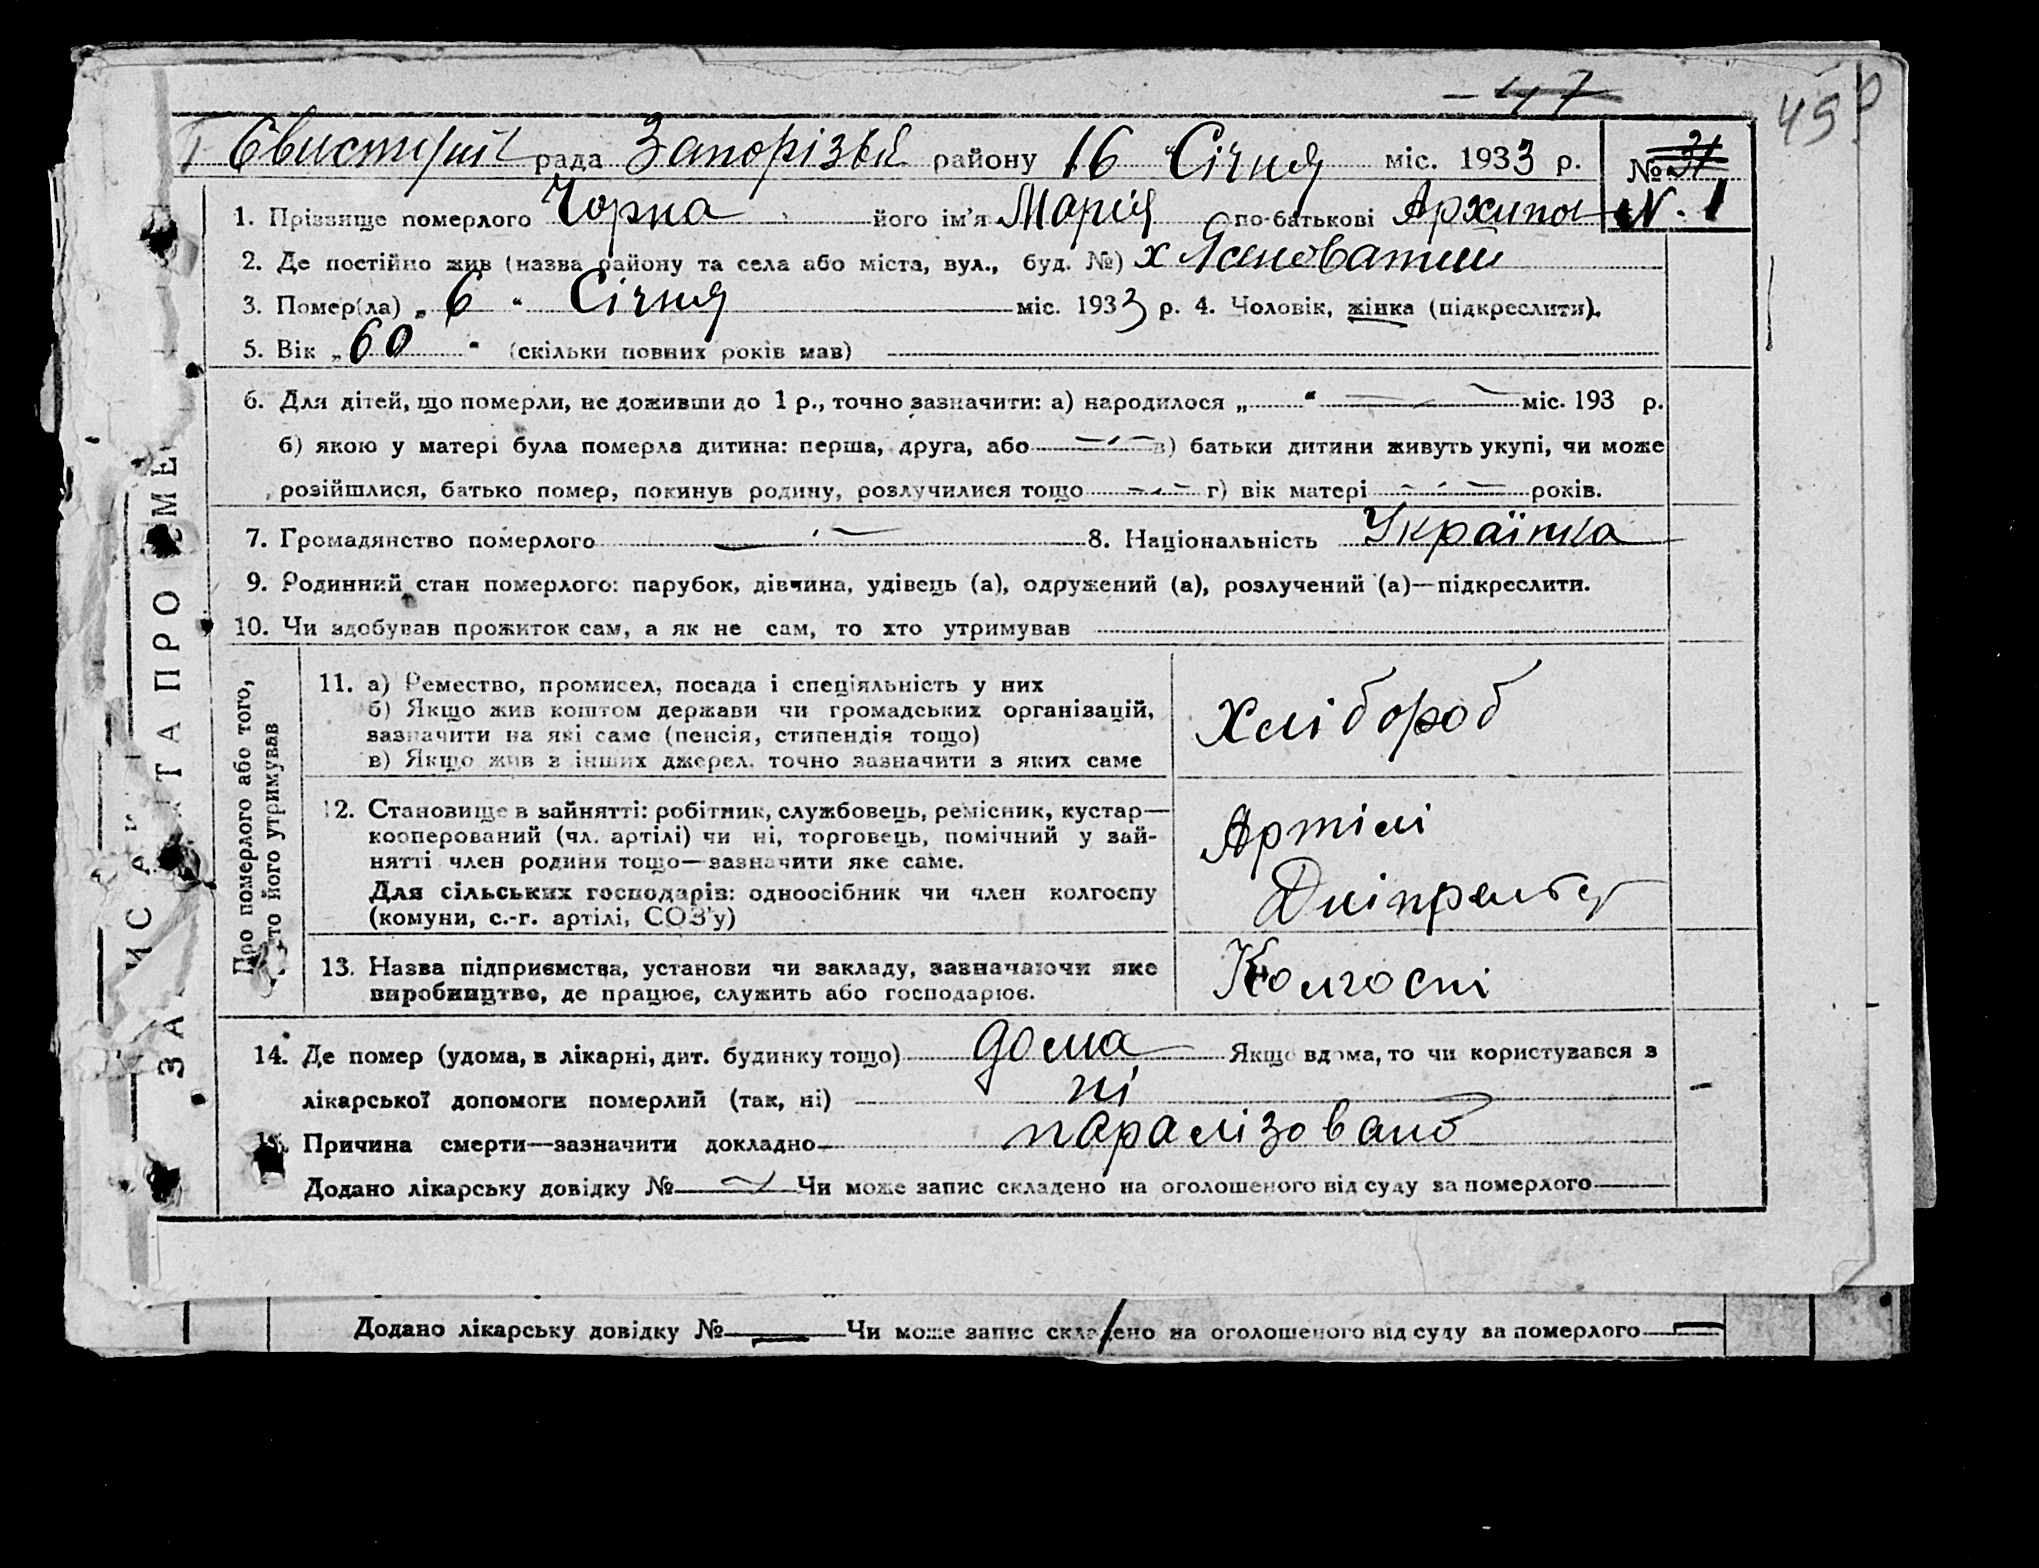 47
49
Євистирні рада Запорізької району 16 "Січня міс. 1933 р. № 31
1. Прізвище померлого Чорна його ім'я Марія по-батькові Архипов N. 1
2. Де постійно жив (назва району та села або міста, вул., буд. №) х
3. Помер(ла) „ 6 " Січня міс. 1933 р. 4. Чоловік, жінка (підкреслити).
5. Вік „ 60 " (скільки повних років мав)
6. Для дітей, що померли, не доживши до 1 р., точно зазначити: а) народилося „ " міс. 193 р.
б) якою у матері була померла дитина: перша, друга, або в) батьки дитини живуть укупі, чи може
розійшлися, батько помер, покинув родину, розлучилися тощо г) вік матері років.
7. Громадянство померлого 8. Національність Українка
9. Родинний стан померлого: парубок, дівчина, удівець (а), одружений (а), розлучений (а)—підкреслити.
10. Чи здобував прожиток сам, а як не сам, то хто утримував
Про померлого або того,
хто його утримував
11. а) Ремество, промисел, посада і спеціяльність у них
б) Якщо жив коштом держави чи громадських організацій,
зазначити на які саме (пенсія, стипендія тощо)
в) Якщо жив з інших джерел, точно зазначити з яких саме
Хлібороб
12. Становище в зайнятті: робітник, службовець, ремісник, кустар—
кооперований (чл. артілі) чи ні, торговець, помічний у зай-
нятті член родини тощо—зазначити яке саме.
Для сільських господарів: одноосібник чи член колгоспу
(комуни, с.-г. артілі, СОЗ'у)
Артілі
13. Назва підприємства, установи чи закладу, зазначаючи яке
виробництво, де працює, служить або господарює.
Колгоспі
14. Де помер (удома, в лікарні, дит. будинку тощо) дома Якщо вдома, то чи користувався з
лікарської допомоги померлий (так, ні) ні
Причина смерти—зазначити докладно паралізовано
Додано лікарську довідку № Чи може запис складено на оголошеного від суду за померлого
Додано лікарську довідку № Чи може запис складено на оголошеного від суду за померлого